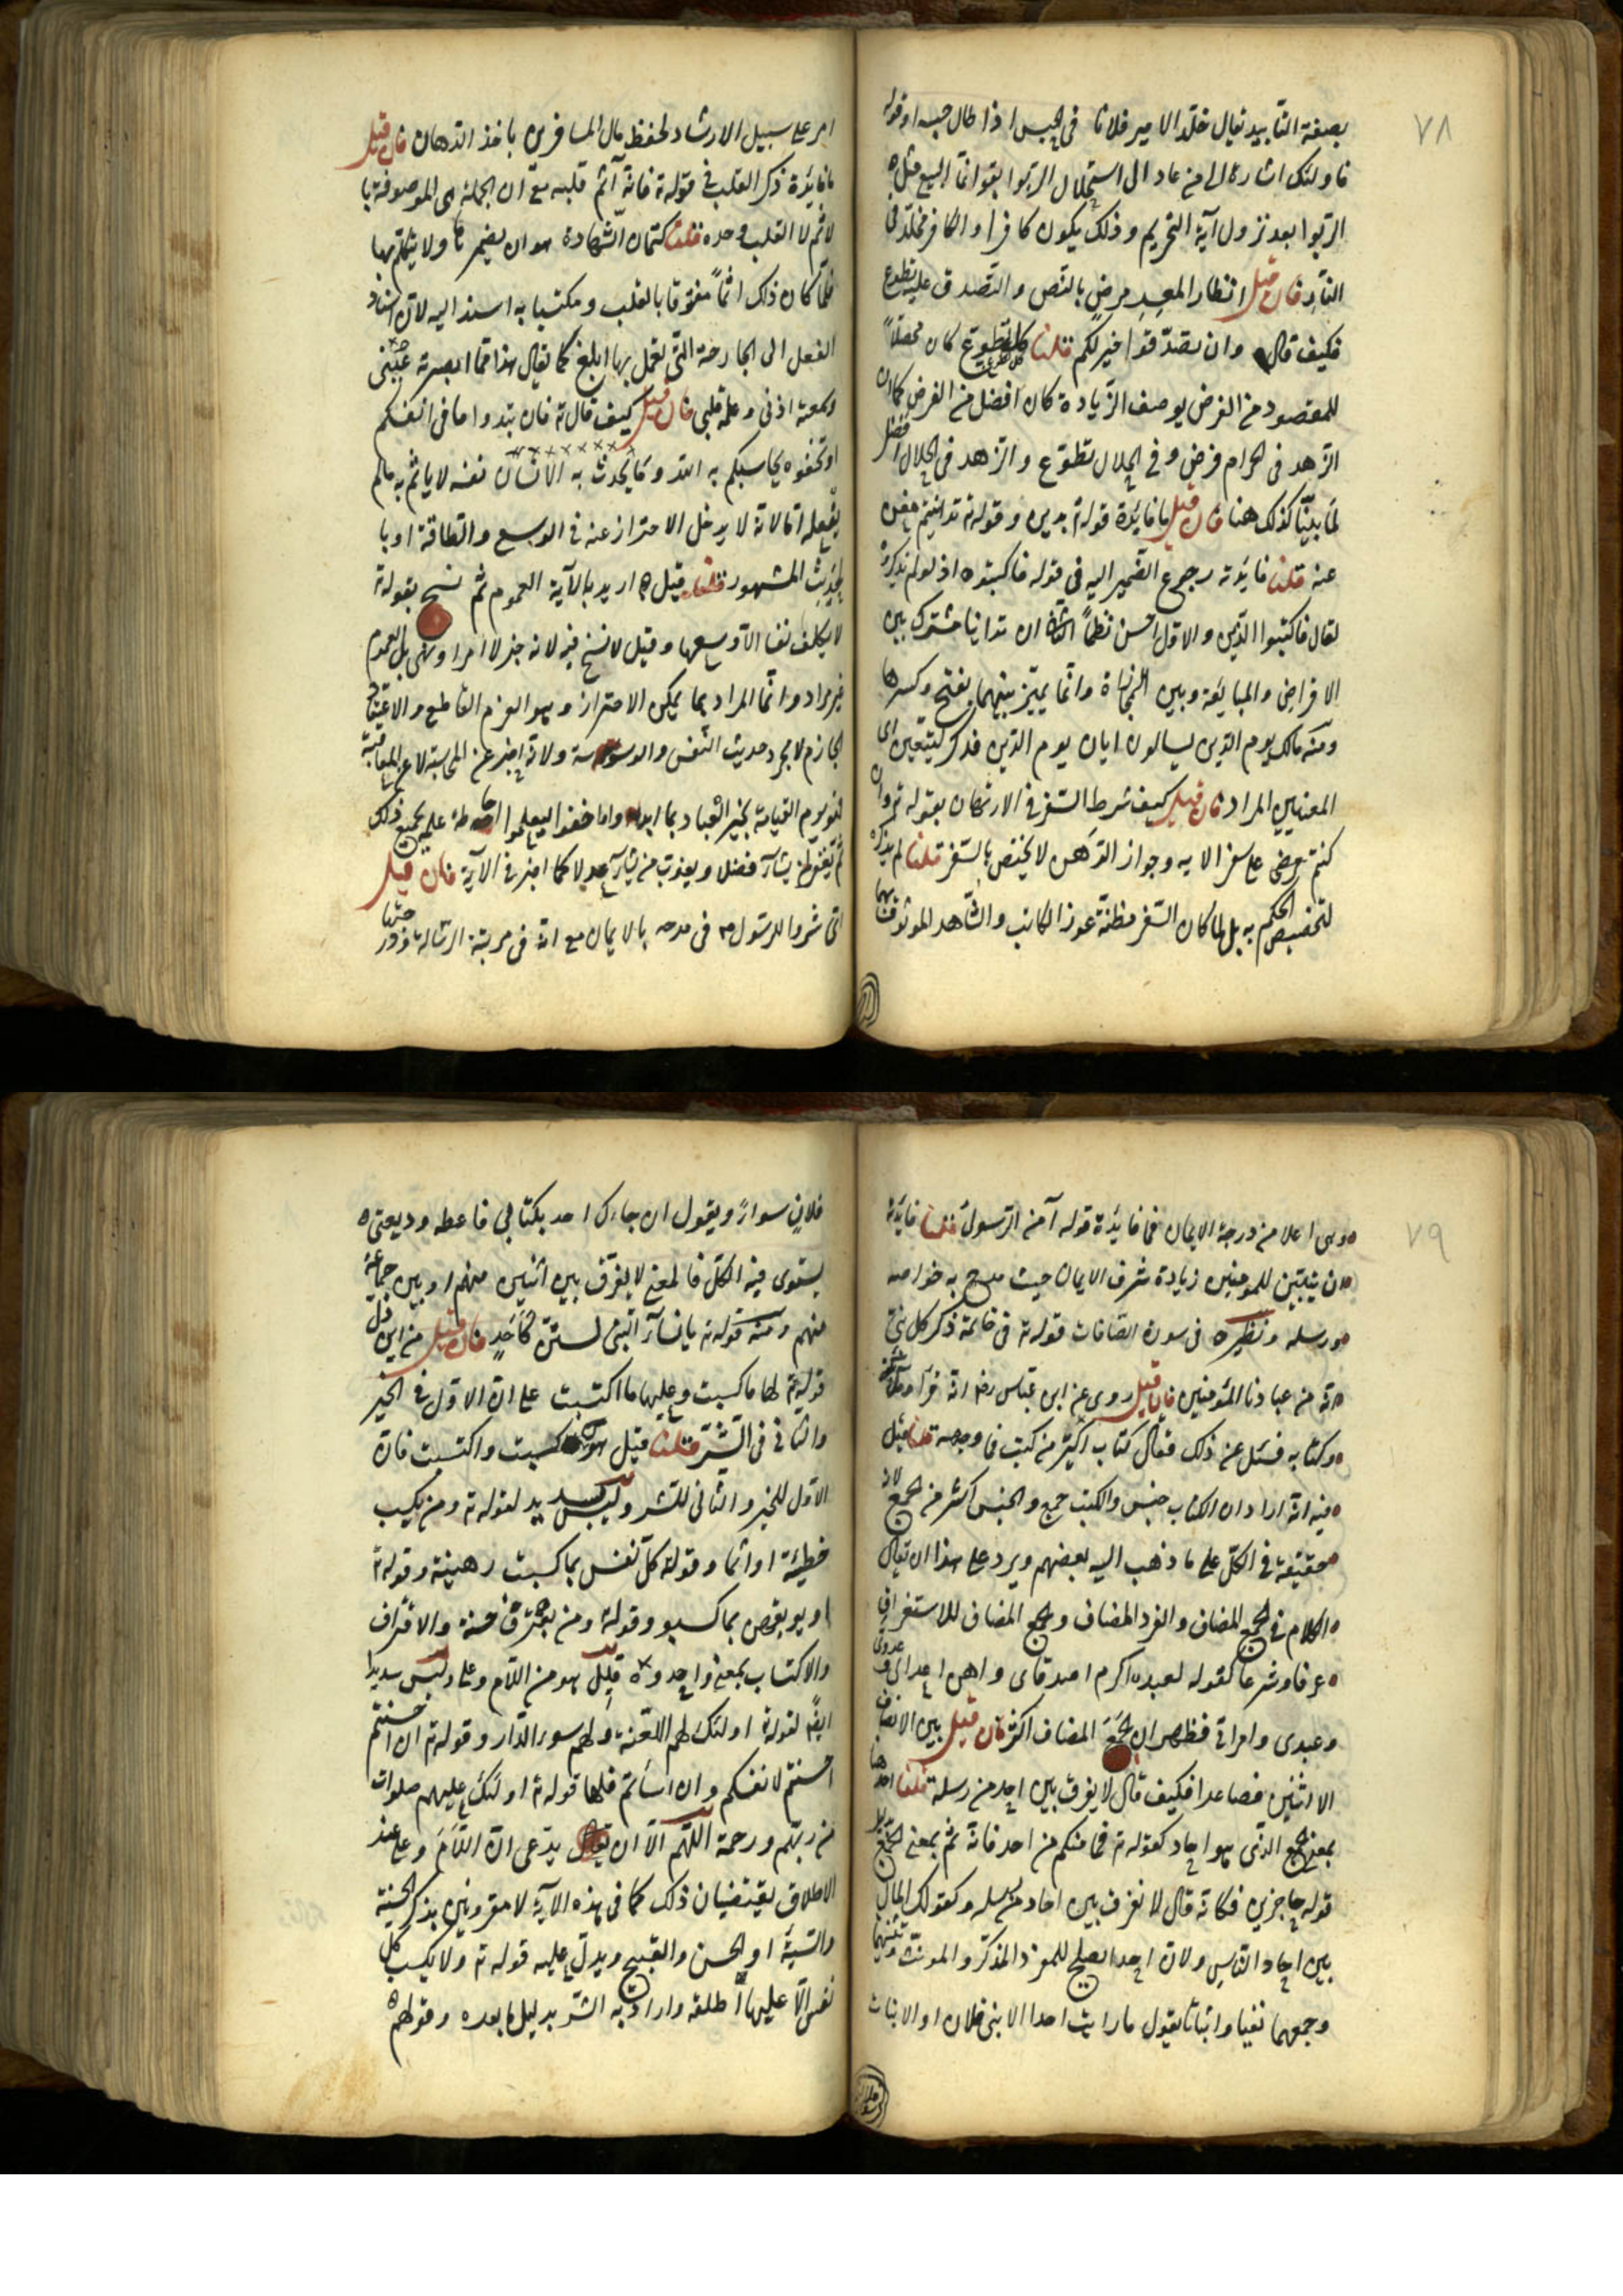 ٧٨
بصفة التأبيد يقال خلد الامير فلانا فى الحبس اذا طال حبسه او قوله
فاولئك اشارة الى من عاد الى استحلال الربوا بقوله انما البيع مثل
الربوا بعد نزول آية التحريم وذلك يكون كافرا والكافر مخلد فى
النار فان قيل انظار المعسر فرض بالنص والتصدق عليه تطوع
فكيف قال وان تصدقوا خير لكم قلنا كل تطوع كان محصلاً
للمقصود من الفرض بوصف الزيادة كان افضل من الفرض كما ان
الزهد فى الحرام فرض وفى الحلال تطوع والزهد فى الحلال افضل
لما بينا كذلك هنا فان قيل ما فايدة قوله تع بدين وقوله تع تداينتم مغن
عنه قلنا فايدته رجوع الضمير اليه فى قوله فاكتبوه اذ لو لم يذكره
لقال فاكتبوا الدين والاول احسن نظماً الثانى ان تداينا مشترك بين
الاقراض والمبايعة وبين المجازاة وانما يتميز بينهما بفتح وكسرها
ومنه مالك يوم الدين يسألون ايان يوم الدين فذكر ليتعين اى
المعنيين المراد فان قيل كيف شرط السفر فى الارتهان بقوله تع وان
كنتم مرضى على سفر الايه وجواز الرهن لا يختص بالسفر قلنا لم يذكره
لتخصيص الحكم به بل لما كان السفر مظنة عوز الكاتب والشاهد الموثوق بهما
امر على سبيل الارشاد لحفظ مال المسافرين باخذ الرهان فان قيل
ما فايدة ذكر القلب فى قوله تع فانه آثم قلبه مع ان الجملة هى الموصوفة با
لاثم لا القلب وحده قلنا كتمان الشهادة هو ان يضمرها ولا يتكلم بها
فلما كان ذلك اثماً مقترفا بالقلب ومكتسبا به اسند اليه لان اسناد
الفعل الى الجارحة التى يعمل بها ابلغ كما يقال هذا مما ابصرته عينى
وسمعته اذنى وعلمه قلبى فان قيل كيف قال تع فان تبدوا ما فى انفسكم
او تخفوه يحاسبكم به الله وما يحدث به الانسان نفسه لا يأثم به مالم
يفعله اما لانه لا يدخل الاحتراز عنه فى الوسع والطاقة او با
لحديث المشهور قلنا قيل اريد بالآية العموم ثم نسخ بقوله تع
لا يكلف نفسا الا وسعها وقيل لا نسخ فيه لانه خبر لا امر او نهى بل العموم
غير مراد وانما المراد بها يمكن الاحتراز وهو العزم القاطع والاعتقاد
الجازم لا مجرد حديث النفس والوسوسة ولانه اخبر عن المحاسبة لا عن المعاقبة
فهو يوم القيامة يخبر العباد بما ابدوا واما خفوا ليعلموا احاطة علمه بجميع ذلك
ثم يغفر لمن يشاء فضلا ويعذب من يشاء عدلا كما اخبر فى الآية فان قيل
اى شرف للرسول م فى مدحه بالايمان مع انه فى مرتبة الرسالة
٧٩
وهى اعلا من درجة الايمان فما فايدة قوله آمن الرسول قلنا فايدته
ان يتبين للمومنين زيادة شرف الايمان حيث مدح به خواصه
ورسله ونظيره فى سورة الصافات قوله تع فى خاتمة ذكر كل نبى
انه من عبادنا المؤمنين فان قيل روى عن ابن عباس رض انه قرأ وملائكته
وكتابه فسئل عن ذلك فقال كتاب اكثر من كتب فما وجهه قلنا قيل
فيه انه اراد ان الكتاب جنس والكتب جمع والجنس اكثر من الجمع لانه
حقيقة فى الكل على ما ذهب اليه بعضهم ويرد على هذا ان يقال
الكلام فى الجمع المضاف والفرد المضاف والجمع المضاف للاستغراق
عرفا وشرعا كقوله لعبده اكرم اصدقاى واهن اعداى
وعبدى وامراتى فظهر ان الجمع المضاف اكثر فان قيل بين الا تضاف
الا اثنين فصاعدا فكيف قال لا يفرق بين احد من رسله قلنا احد هنا
بمعنى الجمع الذى هو احاد كقوله تع فما منكم من احد فانه ثم بمعنى الجمع بد
قوله حاجزين فكانه قال لا نفرق بين احاد من رسله وكقولك المال
بين احاد الناس ولان احدا يصلح للمفرد المذكر والمونث وتثنيتهما
وجمعهما نفيا واثباتا يقول ما رايت احدا الا بنى فلان او الا بنات
فلان سواءً ويقول ان جاءك احد بكتابي فاعطه وديعتى
يستوى فيه الكل فالمعنى لا يفرق بين اثنين منهم او بين جماعة
منهم ومنه قوله تع يا نساء النبى لستن كاحدٍ فان قيل من اين دل
قوله تع لها ما كسبت وعليها ما اكتسبت على ان الاول فى الخير
والثانى فى الشر قلنا قيل هو من كسبت واكتسبت فان
الاول للخير والثانى للشر وليس بسديد لقوله تع ومن يكسب
خطيئة او اثما وقوله كل نفس بما كسبت رهينة وقوله تع
او يوبقهن بما كسبوا وقوله ومن يقترف حسنة والاقتراف
والاكتساب بمعنى واحد وقيل هو من اللام وعلى وليس سديدا
ايضً لقوله تع اولئك لهم اللعنة ولهم سوء الدار وقوله تع ان احسنتم
احسنتم لانفسكم وان اسأتم فلها قوله تع اولئك عليهم صلوات
من ربهم ورحمة اللهم الا ان يقال يدعى ان اللام وعلى عند
الاطلاق يقتضيان ذلك كما فى هذه الآية لا مقرونين بذكر الحسنة
والسيئة او الحسن والقبيح ويدل عليه قوله تع ولا تكسب كل
نفس الا عليها اطلقه واراد به الشر بدليل ما بعده وقولهم